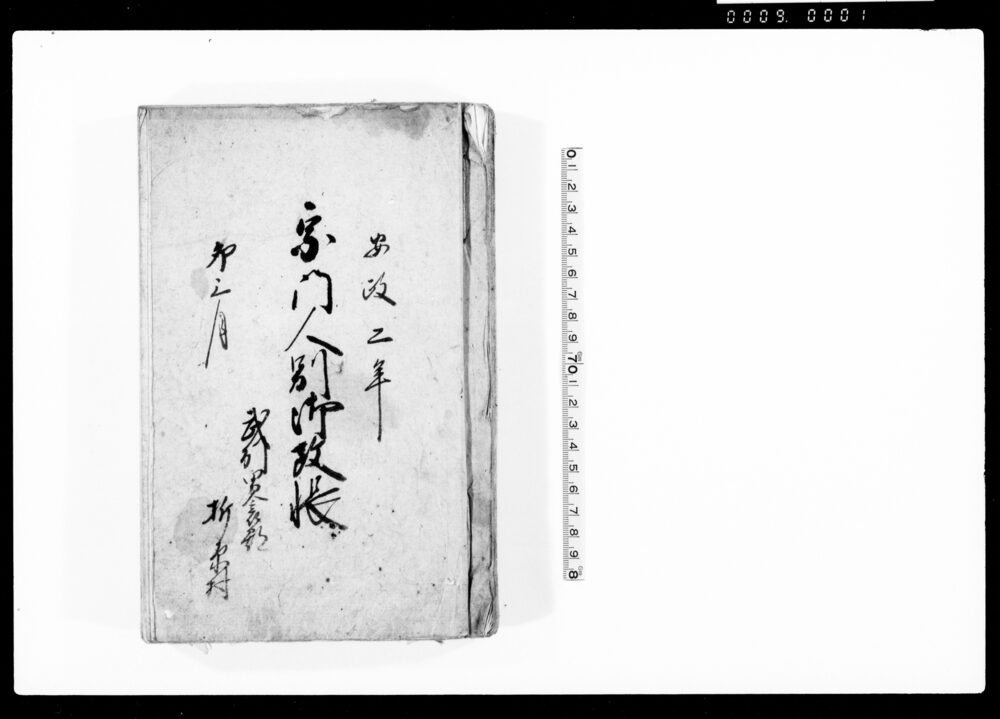 0009. 0001
安政二年
宗門人別御改帳
卯三月
武州男衾郡
折原村
0 1 2 3 4 5 6 7 8 9 70 1 2 3 4 5 6 7 8 9 8